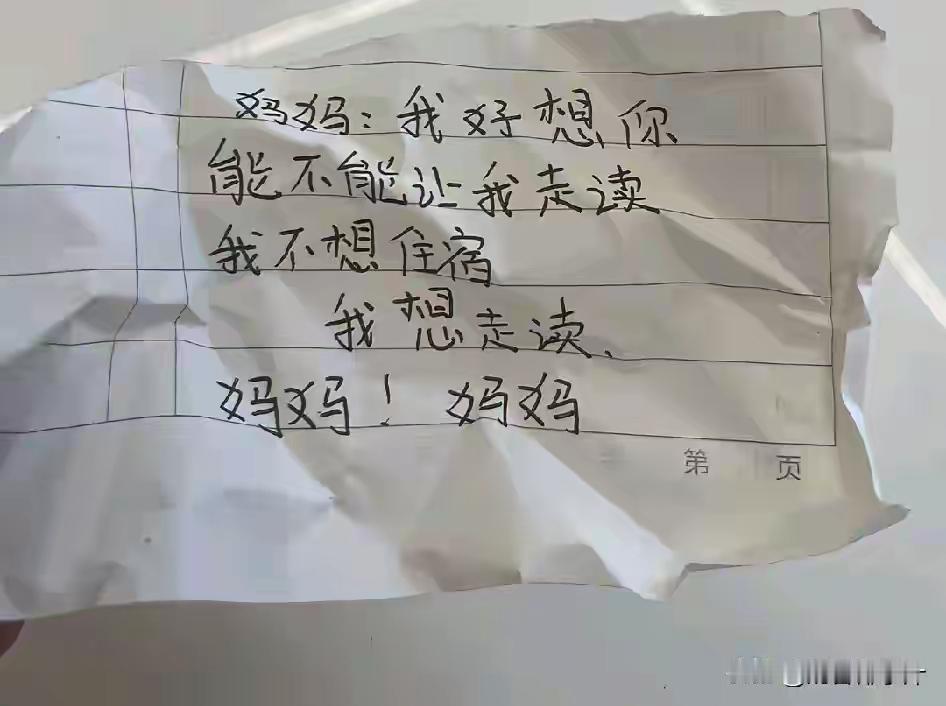 妈妈：我好想你
能不能让我走读
我不想住宿
我想走读、
妈妈！ 妈妈
第 页